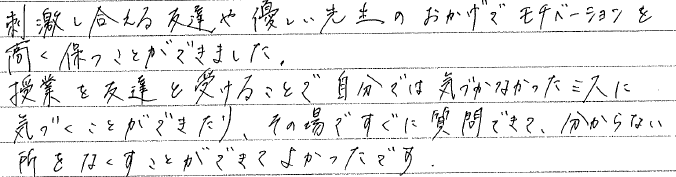 刺激し合える友達や優しい先生のおかげでモチベーションを
高く保つことができました。
授業を友達と受けることで自分では気づかなかったミスに
気づくことができたり、その場ですぐに質問できて、分からない
所をなくすことができてよかったです.